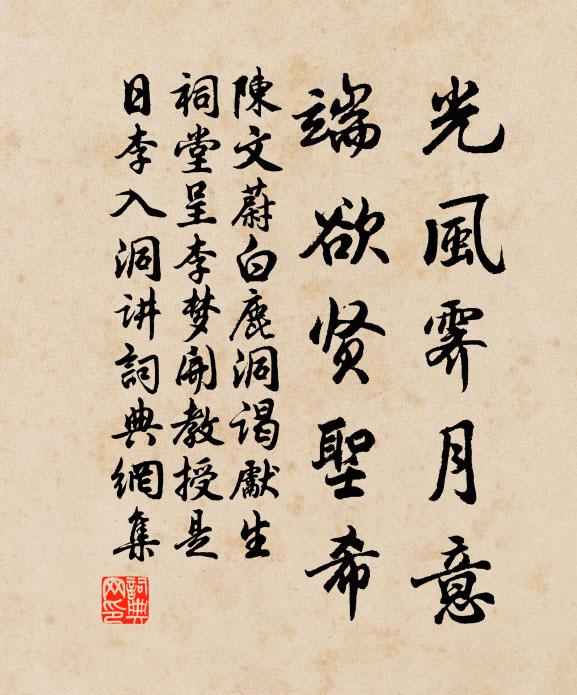 光風霽月意
端欲贤聖希
陳文蔚白鹿洞谒獻生
祠堂呈李梦開教授是
日李入洞讲詞典網集
詞典网印